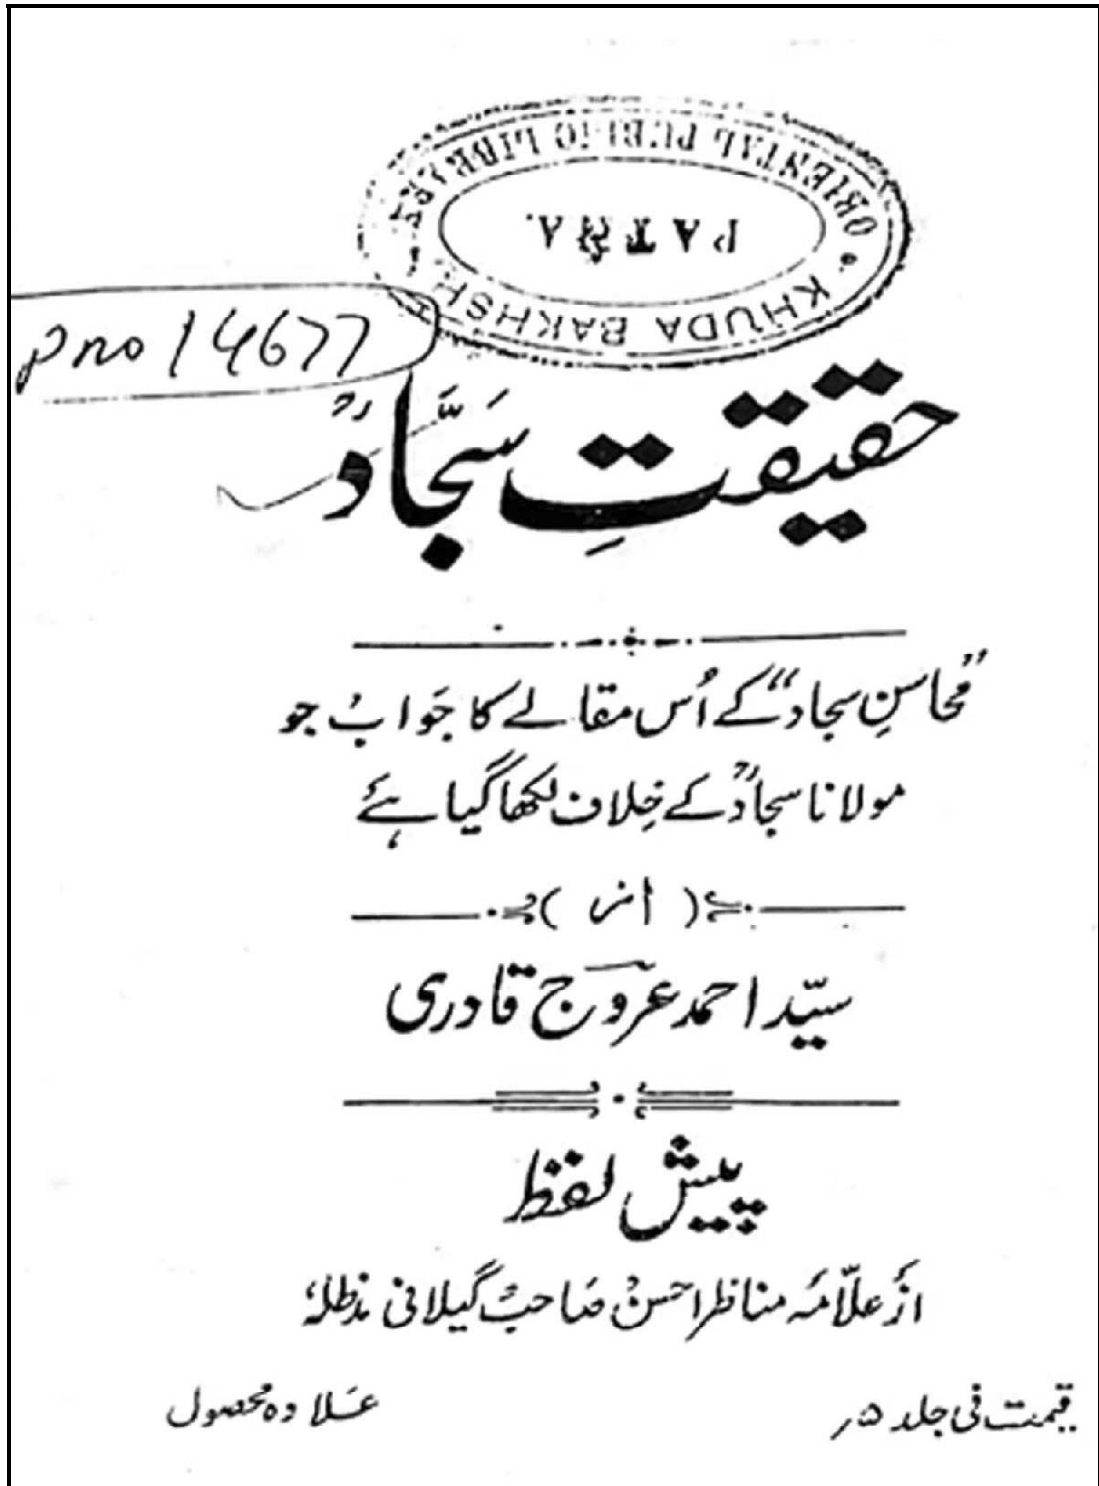 ORIENTAL PUBLIC LIBRARY
PATNA.
KHUDA BAKHSH
P no 14677
حقیقتِ سَجّادؒ
”محاسنِ سجاد“ کے اُس مقالے کا جَواب جو
مولانا سجادؒ کے خِلاف لکھا گیا ہے
( از )
سیّد احمد عروج قادری
پیش لفظ
از علّامہ مناظر احسن صاحب گیلانی مدظلہٗ
قیمت فی جلد ۵؍
علاوہ محصول